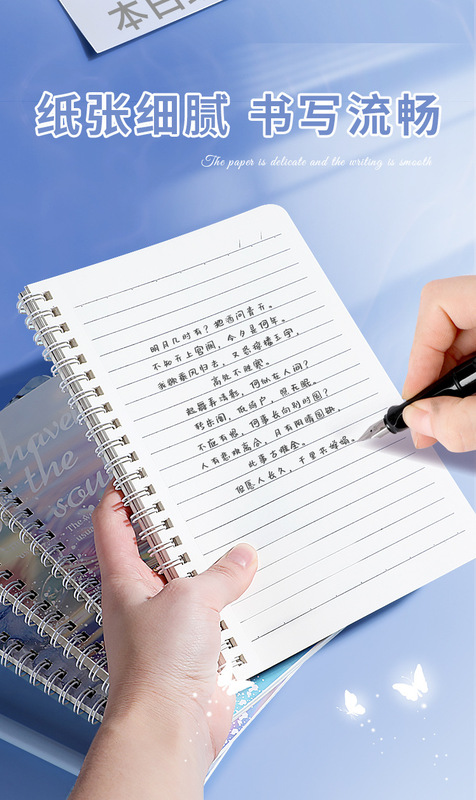 本
纸张细腻 书写流畅
The paper is delicate and the writing is smooth
明月几时有？把酒问青天。
不知天上宫阙，今夕是何年。
我欲乘风归去，又恐琼楼玉宇，
高处不胜寒。
起舞弄清影，何似在人间？
转朱阁，低绮户，照无眠。
不应有恨，何事长向别时圆？
人有悲欢离合，月有阴晴圆缺，
此事古难全。
但愿人长久，千里共婵娟。
have
the
soul